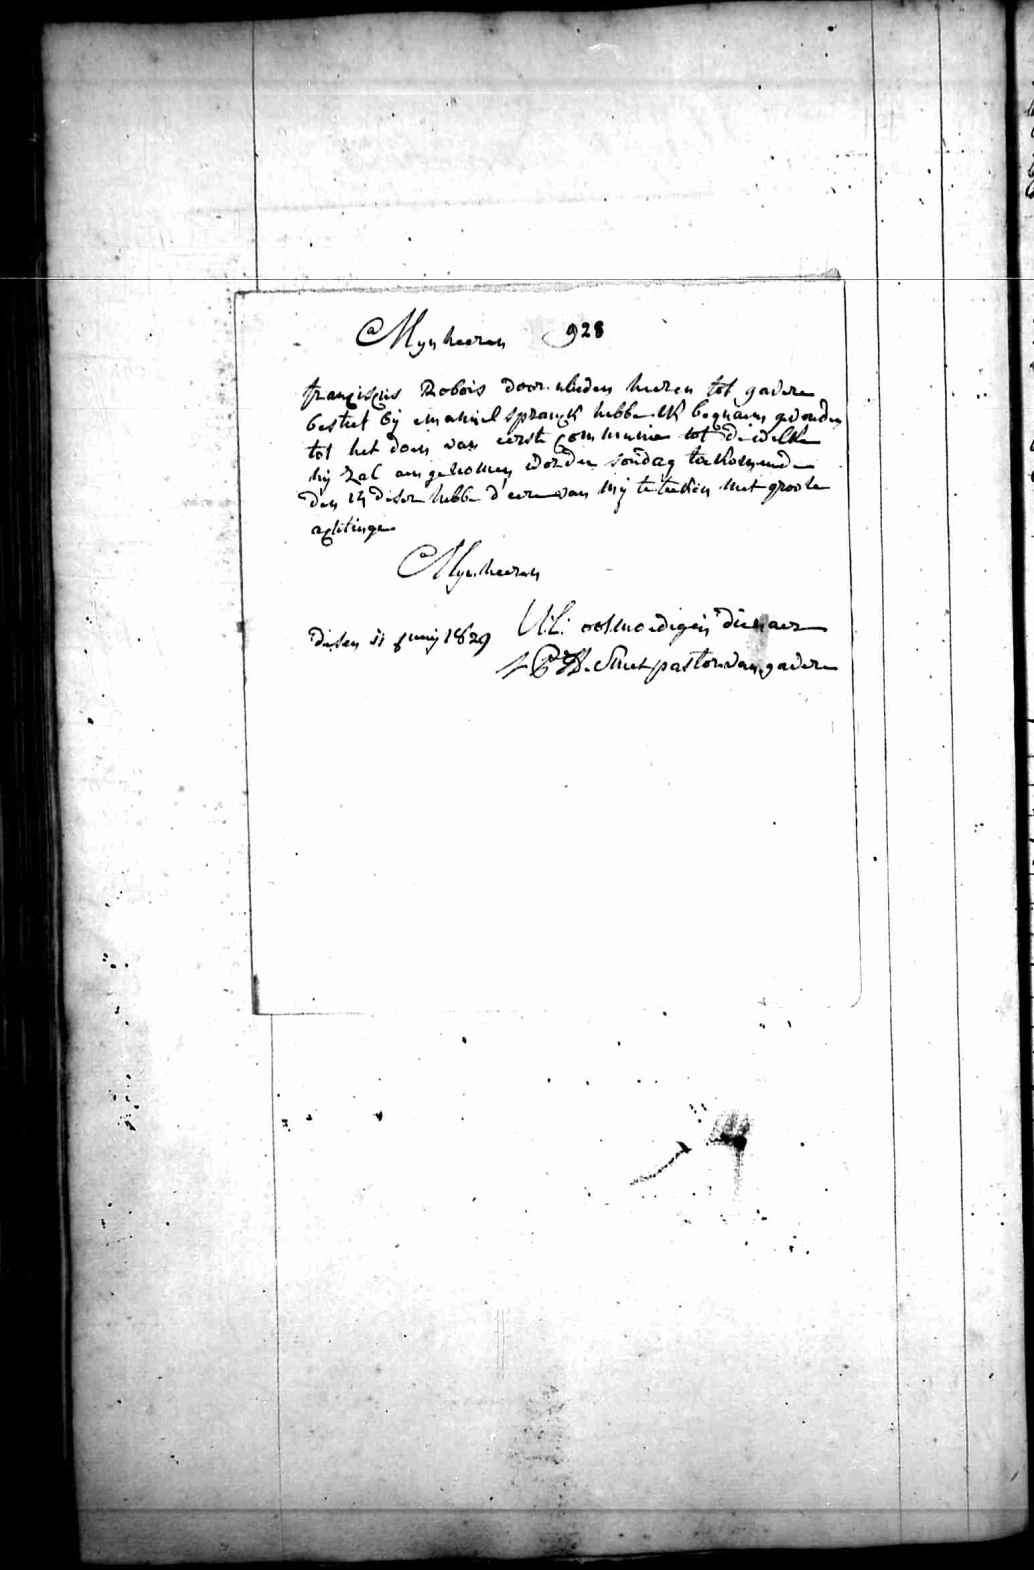 Mynheeren 928
franciscus Robois door ulieden heeren tot gavere
bestiet bij emanuel spranck hebbe ik bequaem gvonden
tot het doen van eerste communie tot de welke
hij zal aengenomen worden sondag toekomende
den 14 deser hebbe d'eere van mij te teeken met groote
achtinge
Mynheeren
desen 11 junij 1829 U:L: ootmoedigen dienaer
De Smet pastor van gavere